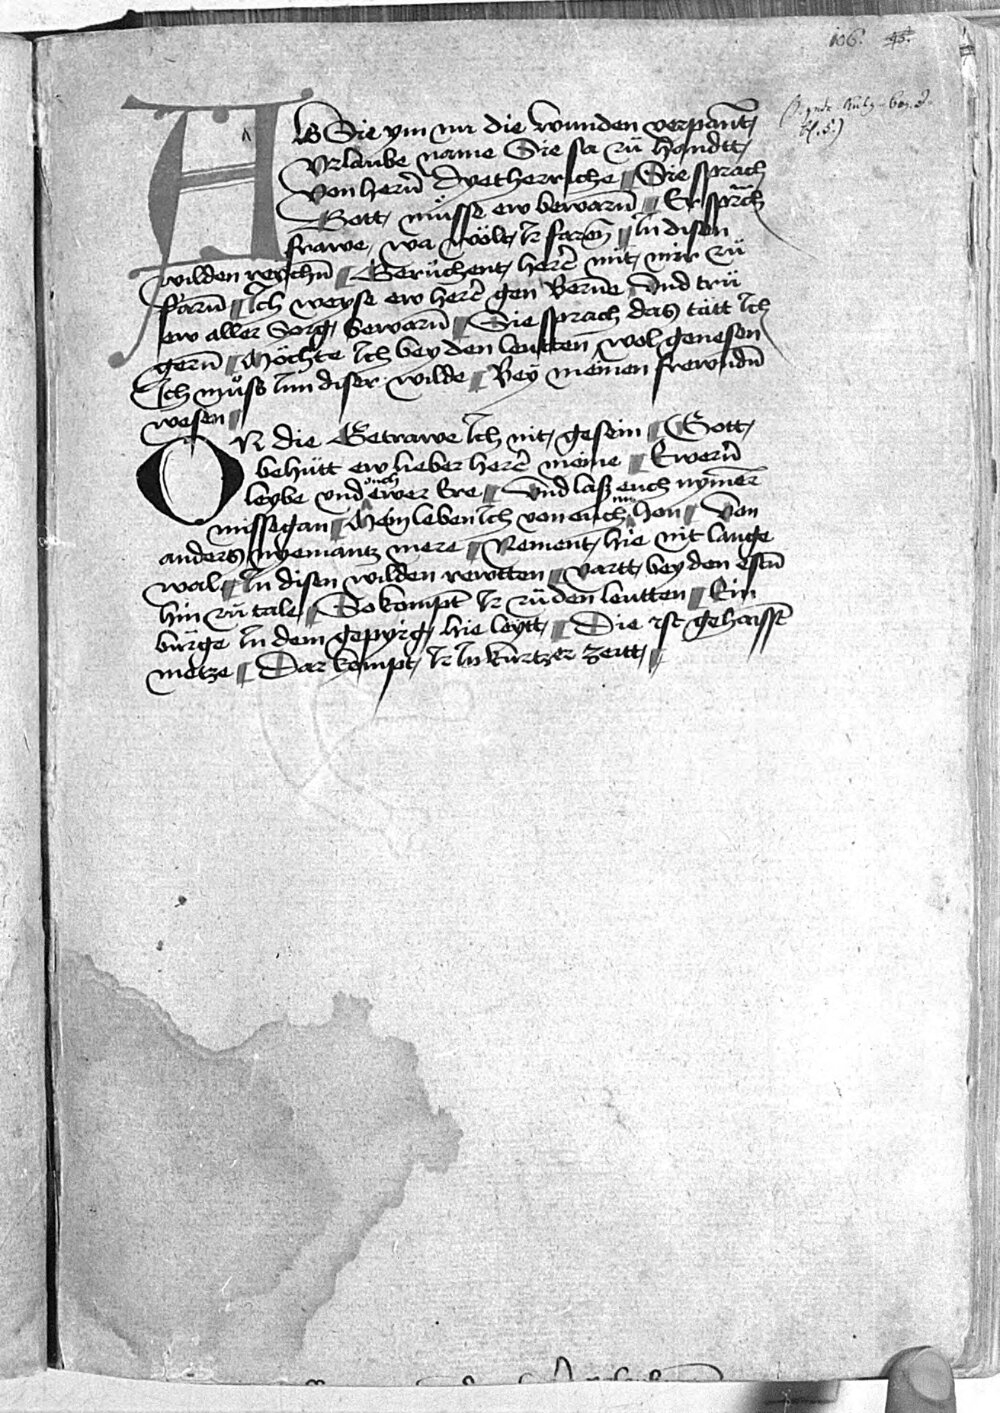 106. 45.
Als Sie ym nü die wunden verpant,
Vrlaube name Sie sa zü Handtt,
Von herñ dyetherriche Sie sprach
Gott, müsse ew bewarñ Er sprach
frawe, wa wölt, Ir farñ In disen
wilden reychñ Gerüchent, herr̃ mit, mir zü
farñ Ich weyse ew herr̃ gen Berne Vnd trü
ew aller Sorg, bewarñ Sie sprach das tätt Ich
gerñ Möchte Ich bey den leutten wol genesen
Ich müss Inn diser wilde Bey meinen frewndñ
wesen
OR die Getrawe Ich nit, gesein Gott,
behütt ew lieber herr̃ meine Ewerñ
leybe vnd auch ewer Ere Vnd lass euch nymer
missegan Mein leben Ich von euch nun hon Von
anders nyemantz mere Nement, hie nit lange
wal, In disen wilden rewtten Vartt, bey den estñ
hin zü tale So kompt Ir zü den leutten Ein
bürge In dem gepyrg, hie leytt, Die ist gehaisst
metze Dar kompt, Ir In kurtzer zeitt,